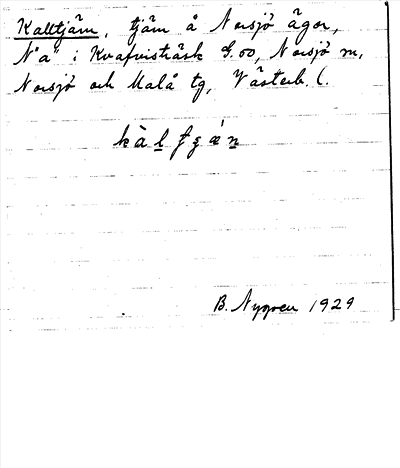 Kalltjärn, tjärn å Norsjö ägor,
N "a" i Kvafvisträsk S.oo, Norsjö sn,
Norsjö och Malå tg, Västerb. l.
B. Nygren 1929